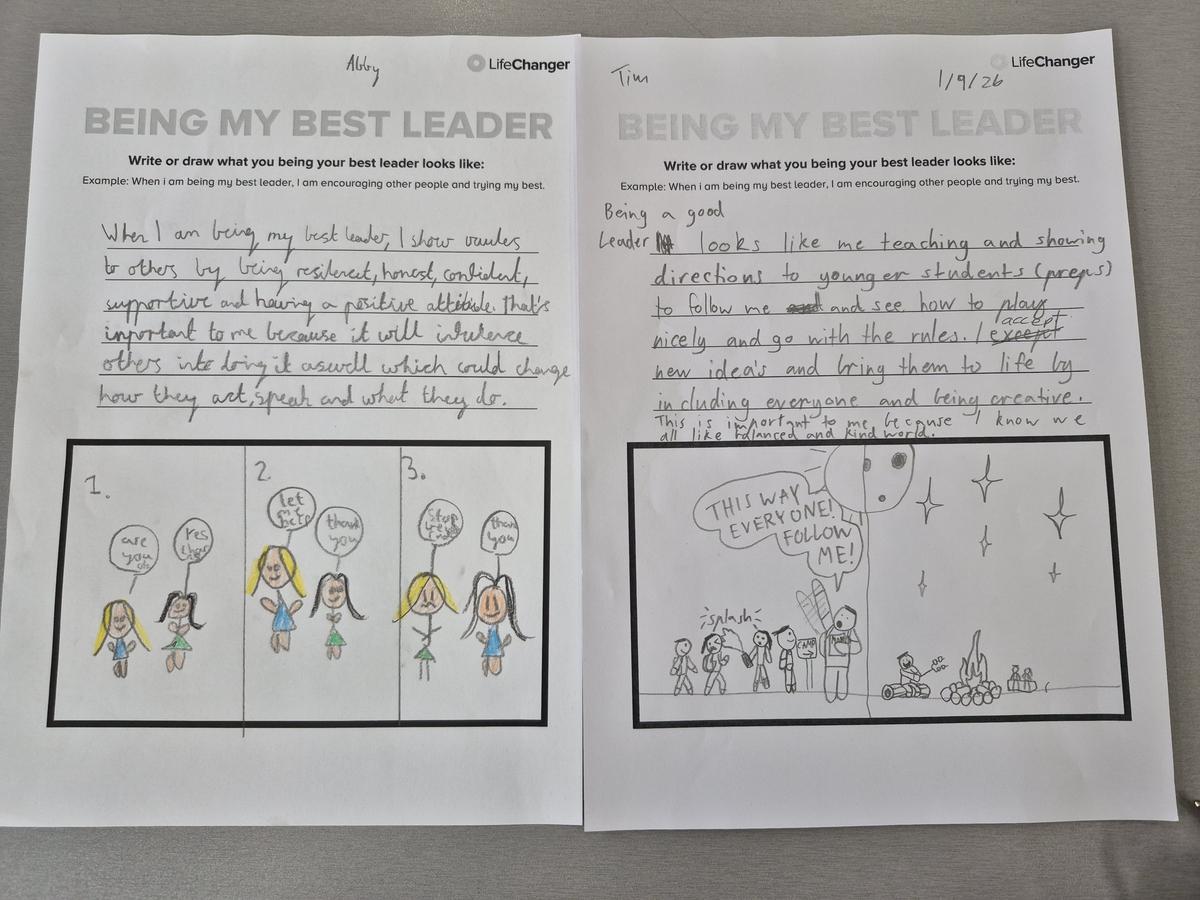 Abby
LifeChanger
BEING MY BEST LEADER
Write or draw what you being your best leader looks like:
Example: When i am being my best leader, I am encouraging other people and trying my best.
When I am being my best leader, I show vaules
to others by being resilerect, honest, confident,
supportive and having a positive attitude. That's
important to me because it will influlence
others into doing it aswell which could change
how they act, speak and what they do.
1.
are
you
ok
Yes
2.
let
me
help
thank
you
3.
Stop
thank
you
Tim
1/9/26
LifeChanger
BEING MY BEST LEADER
Write or draw what you being your best leader looks like:
Example: When i am being my best leader, I am encouraging other people and trying my best.
Being a good
Leader looks like me teaching and showing
directions to younger students (preps)
to follow me and and see how to play
nicely and go with the rules. I except accept
new idea's and bring them to life by
including everyone and being creative.
This is important to me because I know we
all like balanced and kind world.
THIS WAY
EVERYONE!
FOLLOW
ME!
splash
CAMP